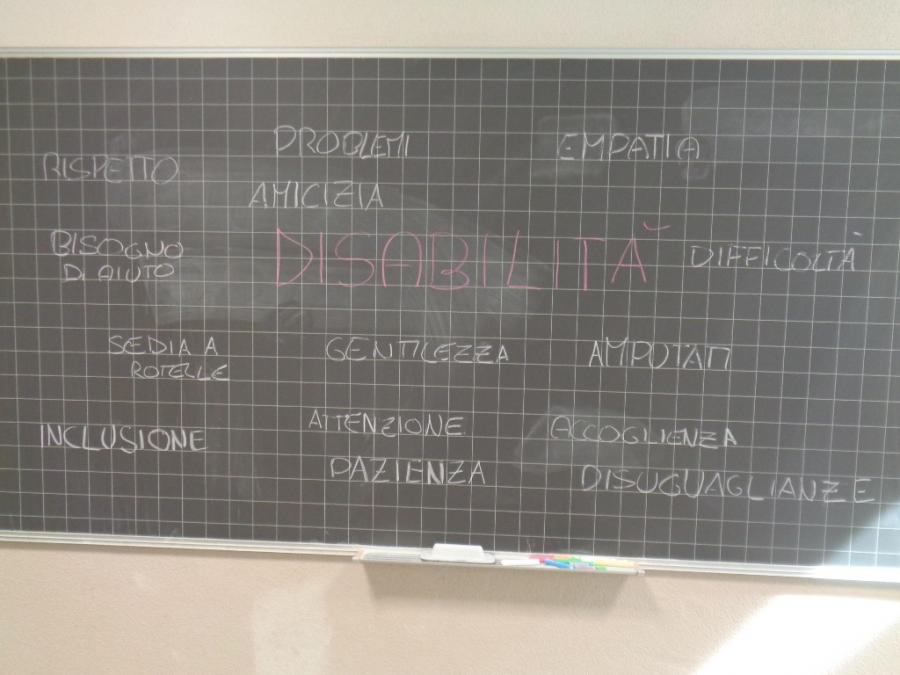 PROBLEMI
EMPATIA
RISPETTO
AMICIZIA
BISOGNO
DI AIUTO
DISABILITÀ
DIFFICOLTÀ
SEDIA A
ROTELLE
GENTILEZZA
AMPUTATI
INCLUSIONE
ATTENZIONE
ACCOGLIENZA
PAZIENZA
DISUGUAGLIANZE